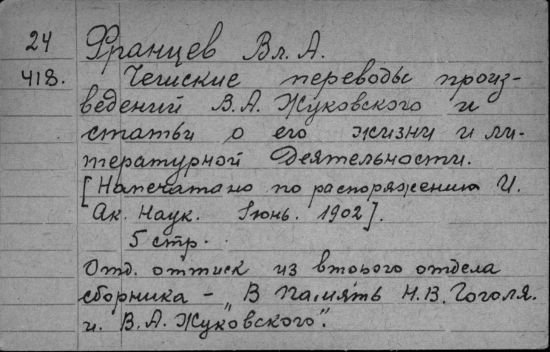 24 Францев Вл. А.
418. Чешские переводы произ-
ведений В. А. Жуковского и
статьи о его жизни и ли-
тературной деятельности.
[Напечатано по распоряжению И.
Ак. Наук. Iюнь. 1902].
5 стр.
Отд. оттиск из второго отдела
сборника – „В память Н. В. Гоголя.
и. В. А. Жуковского".